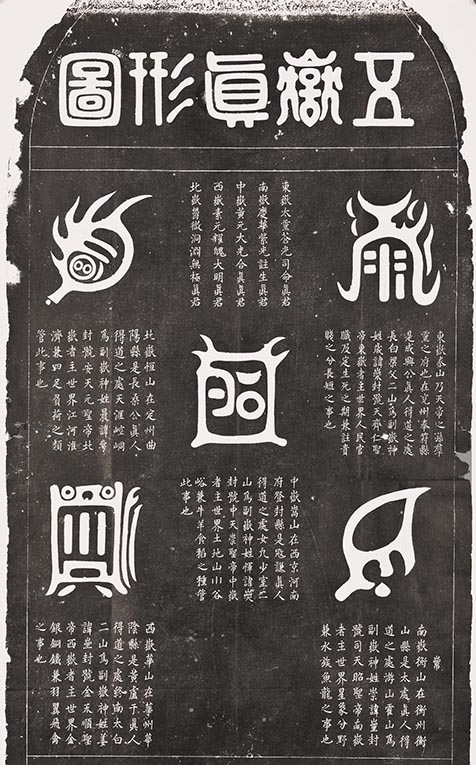 五嶽眞形圖
東嶽太靈蒼光司命眞君
南嶽慶華紫光註生眞君
中嶽黃元大光含眞眞君
西嶽素元耀魄大明眞君
北嶽鬱微洞淵無極眞君
東嶽泰山乃天帝之孫羣
靈之府也在兗州奉符縣
是成興公眞人得道之處
長白梁父二山爲副嶽神
姓歲諱崇封號天齊仁聖
帝東嶽者主世界人民官
職及定生死之期兼註貴
賤之分長短之事也
北嶽恒山在定州曲
陽縣是長桑公眞人
得道之處天涯崆峒
爲副嶽神姓晨諱萼
封號安天元聖帝北
嶽者主世界江河淮
濟兼四足負荷之類
管此事也
中嶽嵩山在西京河南
府登封縣是寇謙眞人
得道之處女九少室二
山爲副嶽神姓惲諱
封號中天崇聖帝中嶽
者主世界土地山川谷
峪兼牛羊食稻之種管
此事也
南嶽衡山在衡州衡
山縣是太處眞人得
道之處潛山霍山爲
副嶽神姓崇諱封
號司天昭聖帝南嶽
者主世界星象分野
兼水族魚龍之事也
西嶽華山在華州華
陰縣是黃盧子眞人
得道之處終南太白
二山爲副嶽神姓姜
諱壘封號金天順聖
帝西嶽者主世界金
銀銅鐵兼羽翼飛禽
之事也